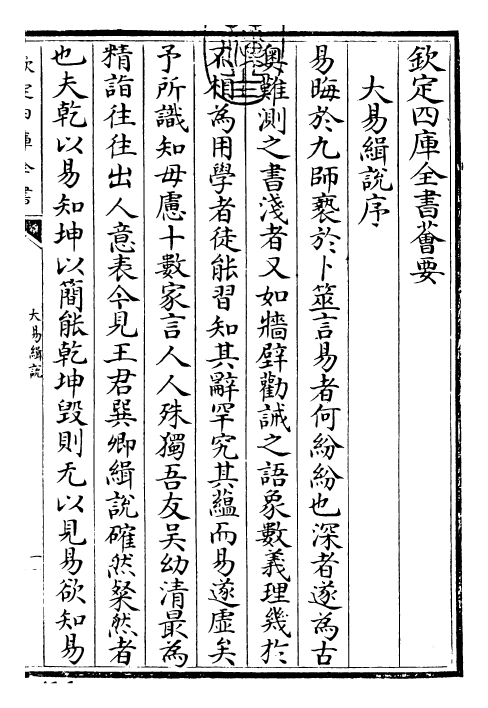 欽定四庫全書薈要
大易緝說序
易晦於九師褻於卜筮言易者何紛紛也深者遂為古
奧難測之書淺者又如牆壁勸誡之語象數義理幾於
不相為用學者徒能習知其辭罕究其蘊而易遂虛矣
予所識知毋慮十數家言人人殊獨吾友吳幼清最為
精詣往往出人意表今見王君巽卿緝說確然粲然者
也夫乾以易知坤以簡能乾坤毀則无以見易欲知易
欽定四庫全書
大易緝說
一